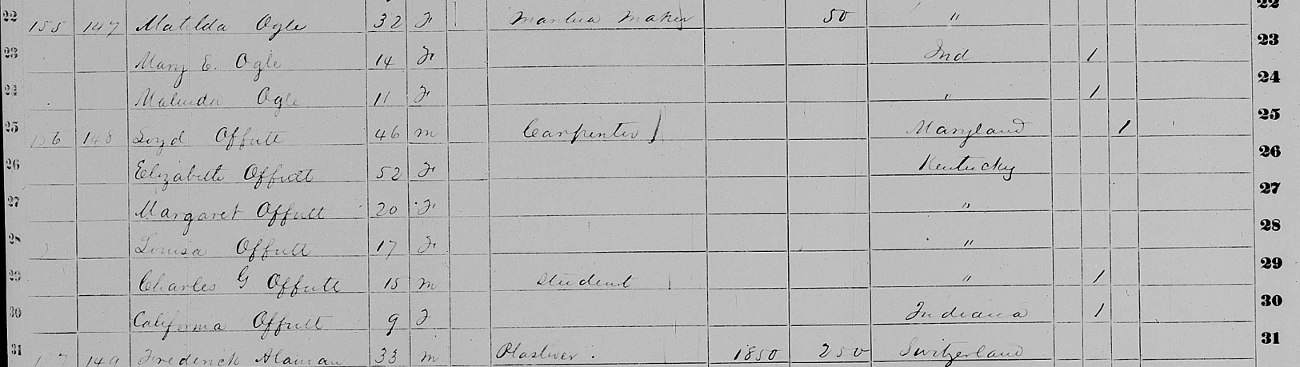 22 155 147 Matilda Ogle 32 F Mantua Maker 50 " 22
23 Mary E. Ogle 14 F Ind 1 23
24 Malinda Ogle 11 F " 1 24
25 156 148 Loyd Offutt 46 m Carpenter Maryland 1 25
26 Elizabeth Offutt 52 F Kentucky 26
27 Margaret Offutt 20 F " 27
28 Louisa Offutt 17 F " 28
29 Charles G Offutt 15 m Student " 1 29
30 California Offutt 9 F Indiana 1 30
31 149 Frederick 33 m 1850 250 Switzerland 31